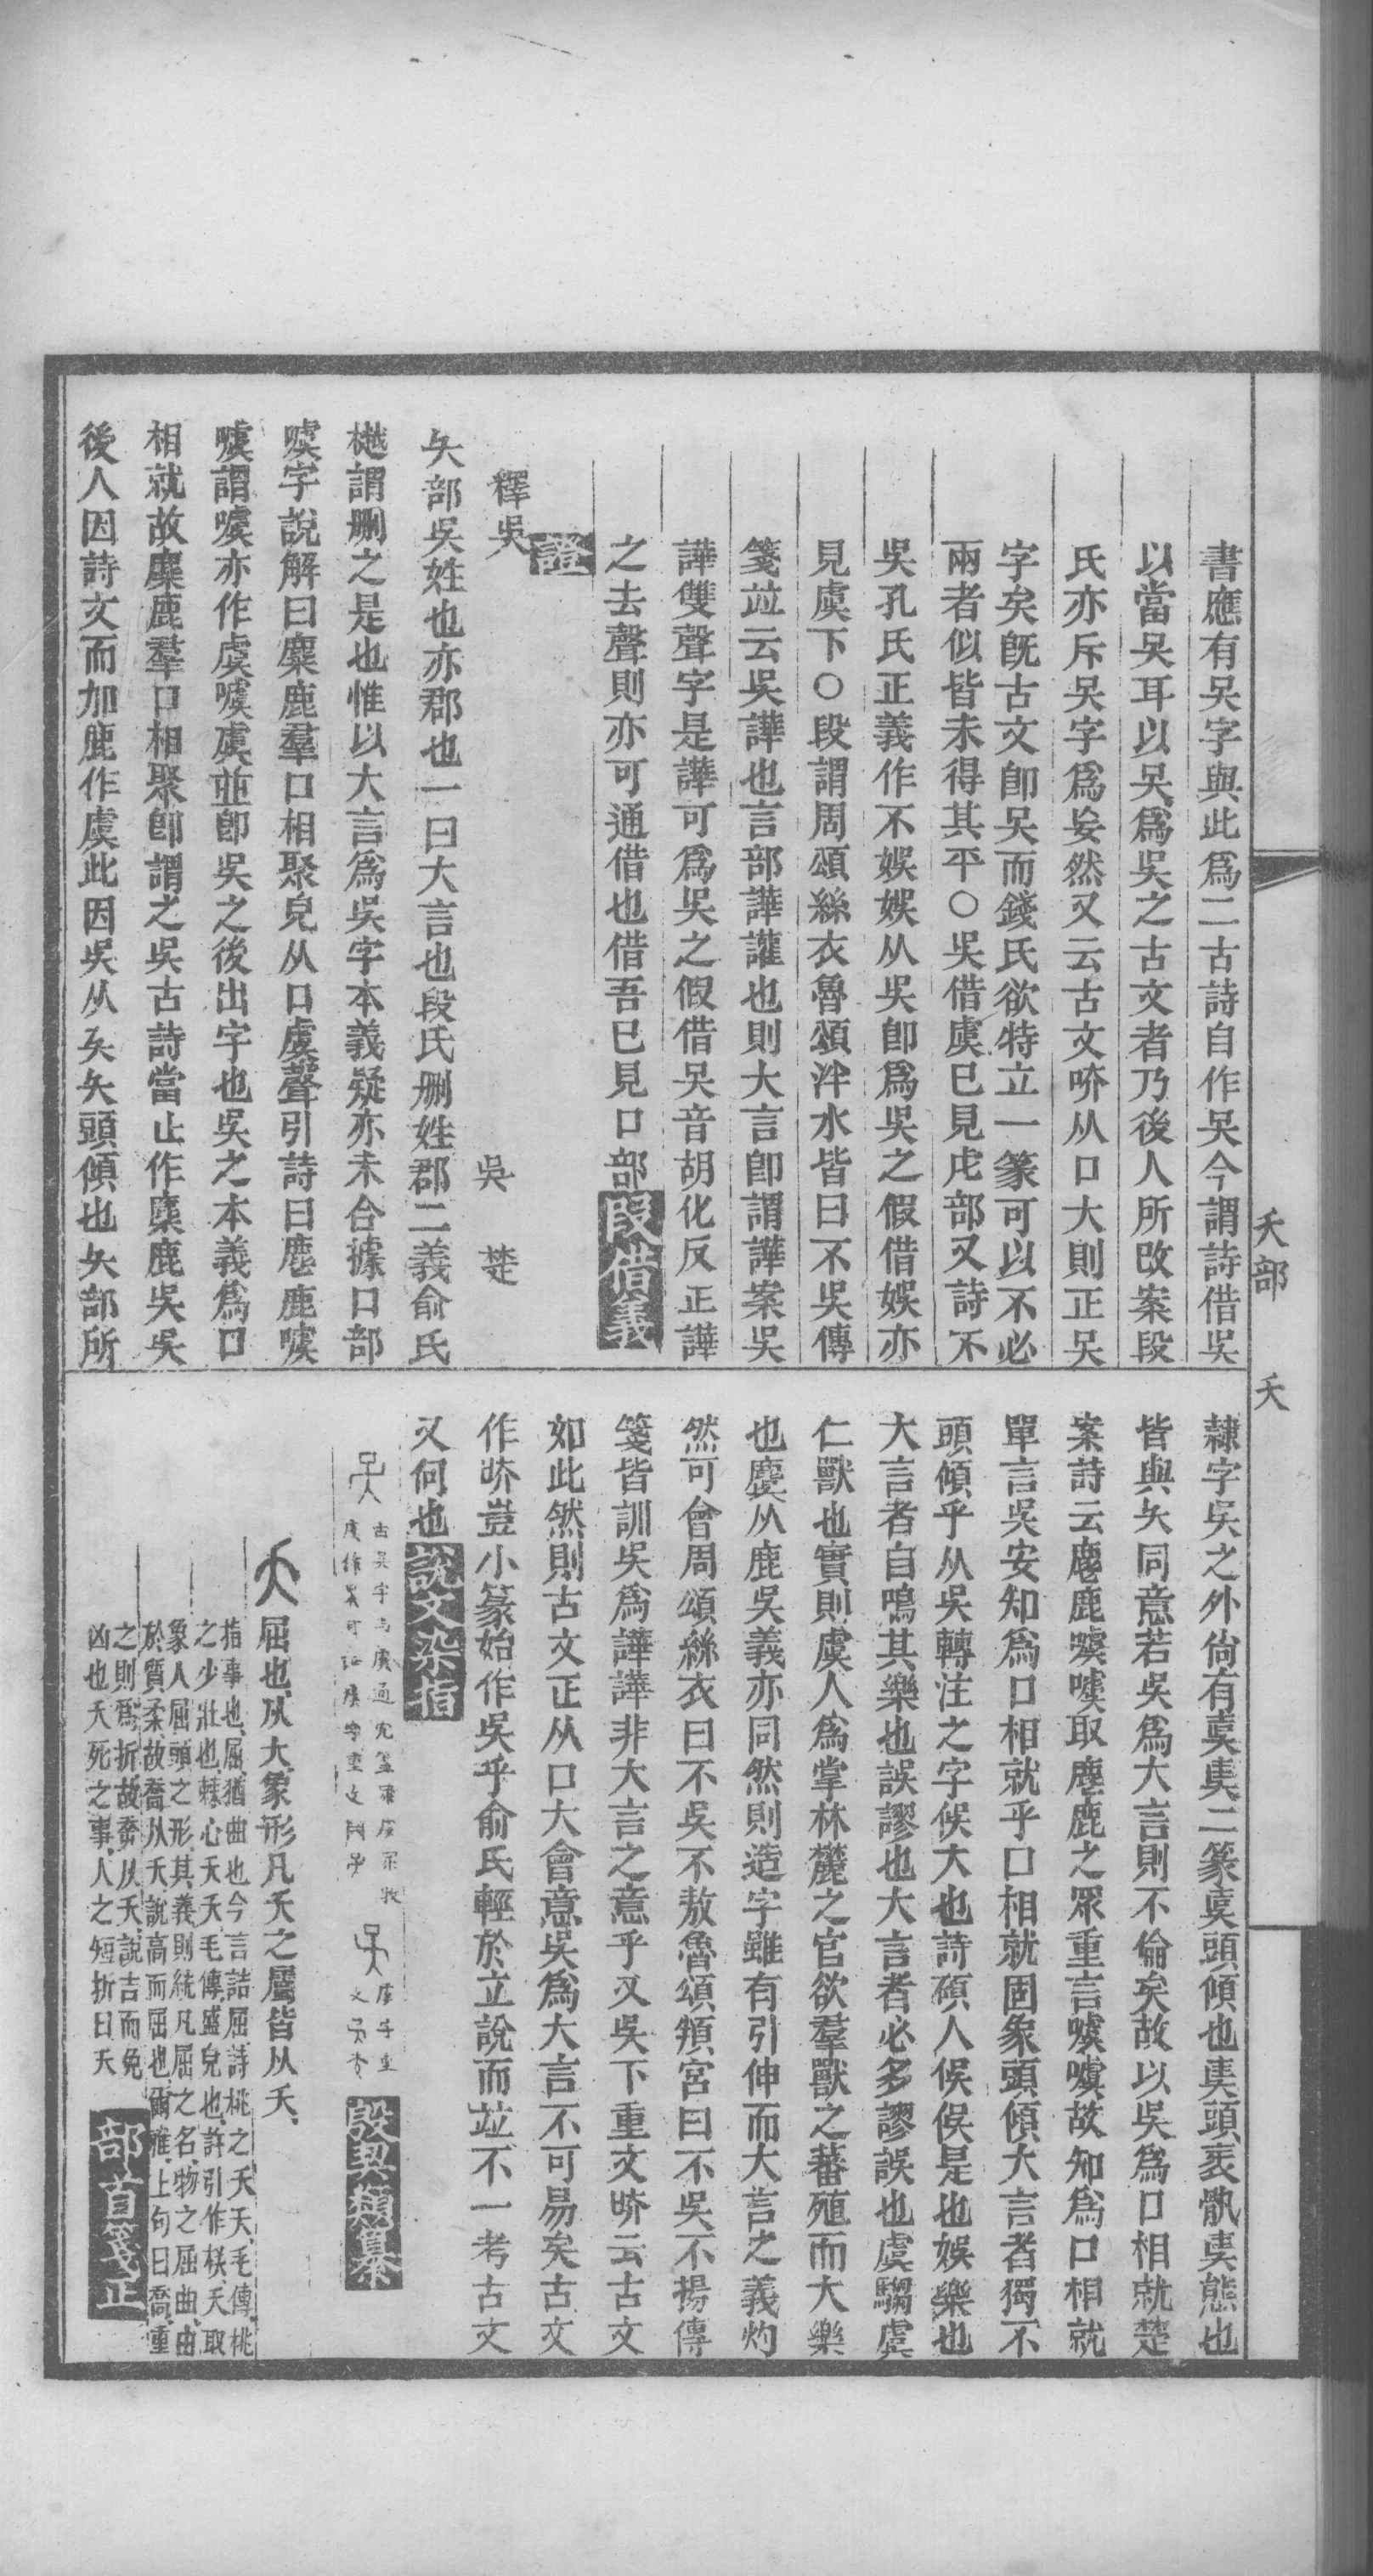 書應有吴字與此爲二古詩自作吴今謂詩借吴
以當吳耳以吴爲吳之古文者乃後人所改案段
氏亦斥吴字爲妄然又云古文㕦从口大則正吴
字矣旣古文卽吴而錢氏欲特立一篆可以不必
兩者似皆未得其平○吳借虞已見虍部又詩不
吳孔氏正義作不娛娛从吳卽爲吳之假借娛亦
見虞下○段謂周頌絲衣魯頌泮水皆曰不吳傳
箋竝云吳譁也言部譁讙也則大言卽謂譁案吳
譁雙聲字是譁可爲吳之假借吴音胡化反正譁
之去聲則亦可通借也借吾已見口部段借義
證
釋吳
吳楚
夨部吳姓也亦郡也一曰大言也段氏删姓郡二義俞氏
樾謂删之是也惟以大言爲吳字本義疑亦未合據口部
噳字說解曰麋鹿羣口相聚皃从口虞聲引詩曰麀鹿噳
噳謂噳亦作虞噳虞並卽吳之後出字也吳之本義爲口
相就故麋鹿羣口相聚卽謂之吳古詩當止作麋鹿吳吳
後人因詩文而加鹿作虞此因吳从夨夨頭傾也夨部所
隷字吳之外尙有𡕢𡕥二篆𡕢頭傾也𡕥頭衺骫𡕥態也
皆與夨同意若吳爲大言則不倫矣故以吳爲口相就楚
案詩云麀鹿噳噳取麀鹿之眾重言噳噳故知爲口相就
單言吳安知爲口相就乎口相就固象頭傾大言者獨不
頭傾乎从吳轉注之字俁大也詩碩人俁俁是也娛樂也
大言者自鳴其樂也誤謬也大言者必多謬誤也虞騶虞
仁獸也實則虞人爲掌林麓之官欲羣獸之蕃殖而大樂
也麌从鹿吳義亦同然則造字雖有引伸而大言之義灼
然可會周頌絲衣曰不吳不敖魯頌頖宮曰不吳不揚傳
箋皆訓吳爲譁譁非大言之意乎又吳下重文㕦云古文
如此然則古文正从口大會意吳爲大言不可易矣古文
作㕦豈小篆始作吳乎俞氏輕於立說而竝不一考古文
又何也說文染指
古吳字与虞通
殷契類纂
夭屈也从大象形凡夭之屬皆从夭
指事也屈猶曲也今言詰屈詩桃之夭夭毛傳桃
之少壯也棘心夭夭毛傳盛皃也許引作枖夭取
象人屈頭之形其義則統凡屈之名物之屈曲由
於質柔故喬从夭說高而屈也爾雅上句曰喬重
之則爲折故㚔从夭說吉而免
凶也夭死之事人之短折曰夭
部首箋正
夭部
夭